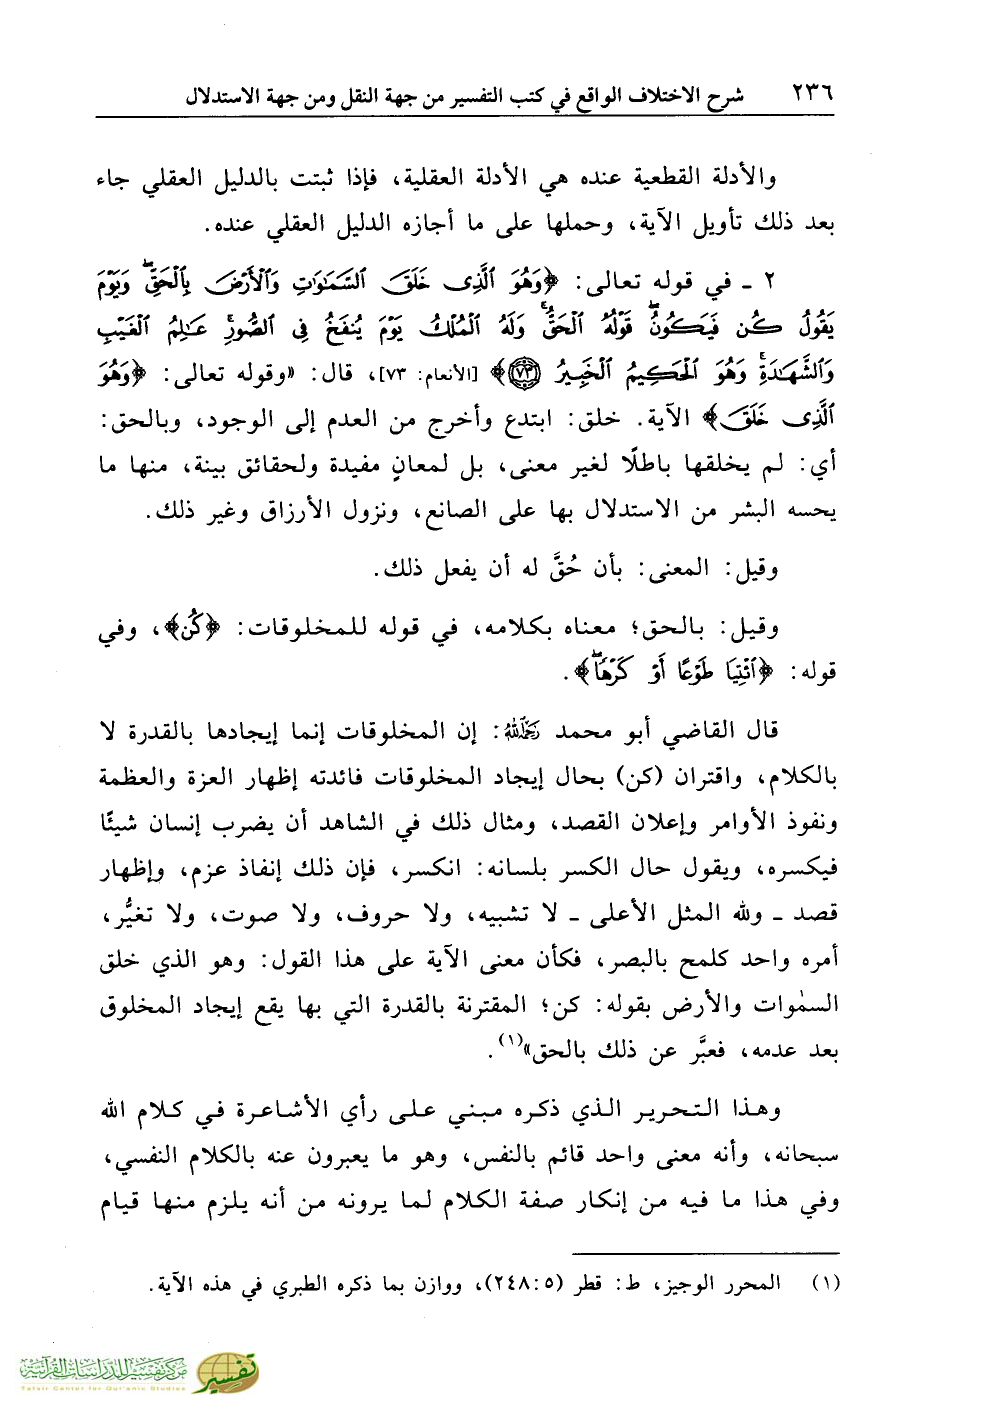 ٢٣٦ شرح الاختلاف الواقع في كتب التفسير من جهة النقل ومن جهة الاستدلال
والأدلة القطعية عنده هي الأدلة العقلية، فإذا ثبتت بالدليل العقلي جاء
بعد ذلك تأويل الآية، وحملها على ما أجازه الدليل العقلي عنده.
٢ ـ في قوله تعالى: ﴿وَهُوَ ٱلَّذِى خَلَقَ ٱلسَّمَٰوَٰتِ وَٱلْأَرْضَ بِٱلْحَقِّۖ وَيَوْمَ
يَقُولُ كُن فَيَكُونُۖ قَوْلُهُ ٱلْحَقُّۚ وَلَهُ ٱلْمُلْكُ يَوْمَ يُنفَخُ فِى ٱلصُّورِۚ عَٰلِمُ ٱلْغَيْبِ
وَٱلشَّهَٰدَةِۚ وَهُوَ ٱلْحَكِيمُ ٱلْخَبِيرُ ٧٣﴾ [الأنعام: ٧٣]، قال: «وقوله تعالى: ﴿وَهُوَ
ٱلَّذِى خَلَقَ﴾ الآية. خلق: ابتدع وأخرج من العدم إلى الوجود، وبالحق:
أي: لم يخلقها باطلًا لغير معنى، بل لمعانٍ مفيدة ولحقائق بينة، منها ما
يحسه البشر من الاستدلال بها على الصانع، ونزول الأرزاق وغير ذلك.
وقيل: المعنى: بأن حُقَّ له أن يفعل ذلك.
وقيل: بالحق؛ معناه بكلامه، في قوله للمخلوقات: ﴿كُن﴾، وفي
قوله: ﴿ٱئْتِيَا طَوْعًا أَوْ كَرْهًاۖ﴾.
قال القاضي أبو محمد رَحِمَهُ اللهُ: إن المخلوقات إنما إيجادها بالقدرة لا
بالكلام، واقتران (كن) بحال إيجاد المخلوقات فائدته إظهار العزة والعظمة
ونفوذ الأوامر وإعلان القصد، ومثال ذلك في الشاهد أن يضرب إنسان شيئًا
فيكسره، ويقول حال الكسر بلسانه: انكسر، فإن ذلك إنفاذ عزم، وإظهار
قصد ـ ولله المثل الأعلى ـ لا تشبيه، ولا حروف، ولا صوت، ولا تغيُّر،
أمره واحد كلمح بالبصر، فكأن معنى الآية على هذا القول: وهو الذي خلق
السمٰوات والأرض بقوله: كن؛ المقترنة بالقدرة التي بها يقع إيجاد المخلوق
بعد عدمه، فعبَّر عن ذلك بالحق»(١).
وهذا التحرير الذي ذكره مبني على رأي الأشاعرة في كلام الله
سبحانه، وأنه معنى واحد قائم بالنفس، وهو ما يعبرون عنه بالكلام النفسي،
وفي هذا ما فيه من إنكار صفة الكلام لما يرونه من أنه يلزم منها قيام
(١) المحرر الوجيز، ط: قطر (٥:٢٤٨)، ووازن بما ذكره الطبري في هذه الآية.
مركز تفسير للدراسات القرآنية تفسير
Tafsir Center for Qur'anic Studies